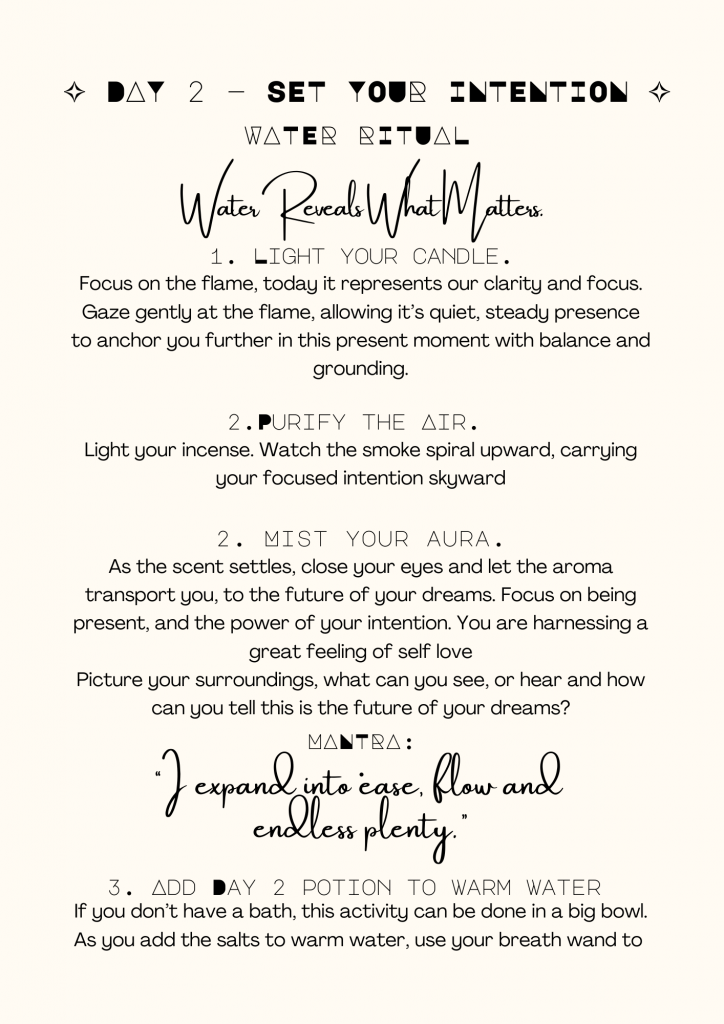 ✧ DAY 2 – SET YOUR INTENTION ✧
WATER RITUAL
Water Reveals What Matters.
1. LIGHT YOUR CANDLE.
Focus on the flame, today it represents our clarity and focus.
Gaze gently at the flame, allowing it's quiet, steady presence
to anchor you further in this present moment with balance and
grounding.
2.PURIFY THE AIR.
Light your incense. Watch the smoke spiral upward, carrying
your focused intention skyward
2. MIST YOUR AURA.
As the scent settles, close your eyes and let the aroma
transport you, to the future of your dreams. Focus on being
present, and the power of your intention. You are harnessing a
great feeling of self love
Picture your surroundings, what can you see, or hear and how
can you tell this is the future of your dreams?
MANTRA:
“I expand into ease, flow and
endless plenty.”
3. ADD DAY 2 POTION TO WARM WATER
If you don't have a bath, this activity can be done in a big bowl.
As you add the salts to warm water, use your breath wand to